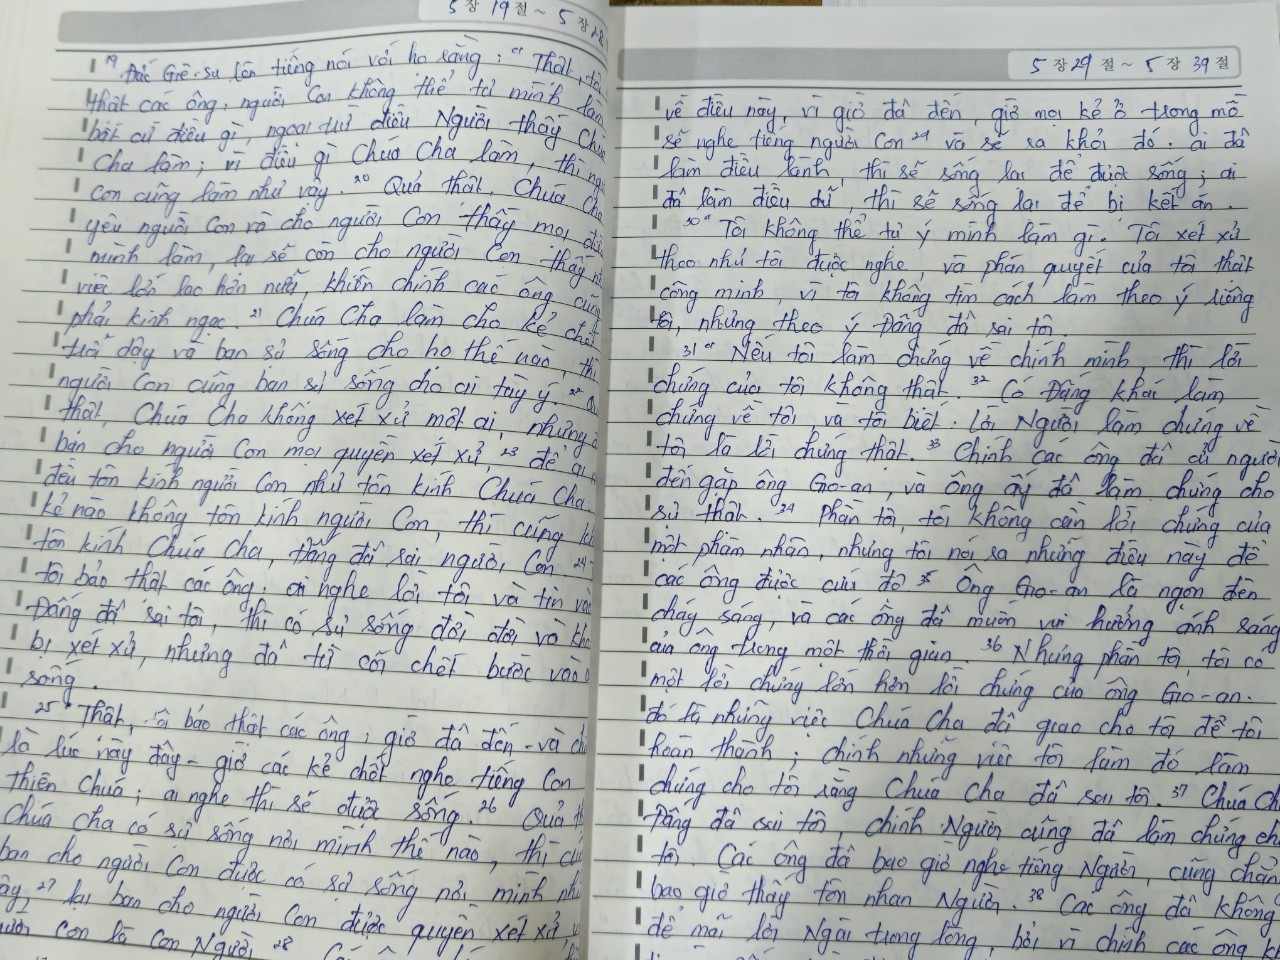 5 장 19 절 ~ 5 장 28
19 Đức Giê-su lên tiếng nói với họ rằng : " Thật, tôi
thật các ông, người Con không thể tự mình làm
bất cứ điều gì, ngoại trừ điều Người thấy Chúa
Cha làm ; vì điều gì Chúa Cha làm, thì người
con cũng làm như vậy. 20 Quả thật, Chúa Cha
yêu người Con và cho người Con thấy mọi điều
mình làm, lại sẽ còn cho người Con thấy
việc lớn lao hơn nữa, khiến chính các ông cũng
phải kinh ngạc. 21 Chúa Cha làm cho kẻ chết
trỗi dậy và ban sự sống cho họ thế nào, thì
người Con cũng ban sự sống cho ai tùy ý. 22
thật, Chúa Cha không xét xử một ai, nhưng
ban cho người Con mọi quyền xét xử, 23 để ai
đều tôn kính người Con như tôn kính Chúa Cha.
kẻ nào không tôn kính người Con, thì cũng
tôn kính Chúa Cha, Đấng đã sai người Con. 24
tôi bảo thật các ông, ai nghe lời tôi và tin vào
Đấng đã sai tôi, thì có sự sống đời đời và
bị xét xử, nhưng đã từ cõi chết bước vào
sống.
25 " Thật, tôi bảo thật các ông, giờ đã đến - và
là lúc này đây - giờ các kẻ chết nghe tiếng Con
thiên Chúa ; ai nghe thì sẽ được sống. 26 Quả
Chúa cha có sự sống nơi mình thế nào, thì
ban cho người Con được có sự sống nơi mình như
27 lại ban cho người Con được quyền xét xử,
Con là Con Người. 28
5 장 29 절 ~ 5 장 39 절
về điều này, vì giờ đã đến, giờ mọi kẻ ở trong mồ
sẽ nghe tiếng người Con 29 và sẽ ra khỏi đó. ai đã
làm điều lành, thì sẽ sống lại để được sống ; ai
đã làm điều dữ, thì sẽ sống lại để bị kết án.
30 " Tôi không thể tự ý mình làm gì. Tôi xét xử
theo như tôi được nghe, và phán quyết của tôi thật
công minh, vì tôi không tìm cách làm theo ý riêng
tôi, nhưng theo ý Đấng đã sai tôi.
31 " Nếu tôi làm chứng về chính mình, thì lời
chứng của tôi không thật. 32 Có Đấng khác làm
chứng về tôi, và tôi biết : Lời Người làm chứng về
tôi là lời chứng thật. 33 Chính các ông đã cử người
đến gặp ông Gio-an, và ông ấy đã làm chứng cho
sự thật. 34 Phần tôi, tôi không cần lời chứng của
một phàm nhân, nhưng tôi nói ra những điều này để
các ông được cứu độ. 35 Ông Gio-an là ngọn đèn
cháy sáng, và các ông đã muốn vui hưởng ánh sáng
của ông trong một thời gian. 36 Nhưng phần tôi, tôi có
một lời chứng lớn hơn lời chứng của ông Gio-an.
đó là những việc Chúa Cha đã giao cho tôi để tôi
hoàn thành ; chính những việc tôi làm đó làm
chứng cho tôi rằng Chúa Cha đã sai tôi. 37 Chúa
Đấng đã sai tôi, chính Người cũng đã làm chứng
tôi. Các ông đã bao giờ nghe tiếng Người, cũng chẳng
bao giờ thấy tôn nhan Người. 38 Các ông đã không
để mãi lời Ngài trong lòng, bởi vì chính các ông